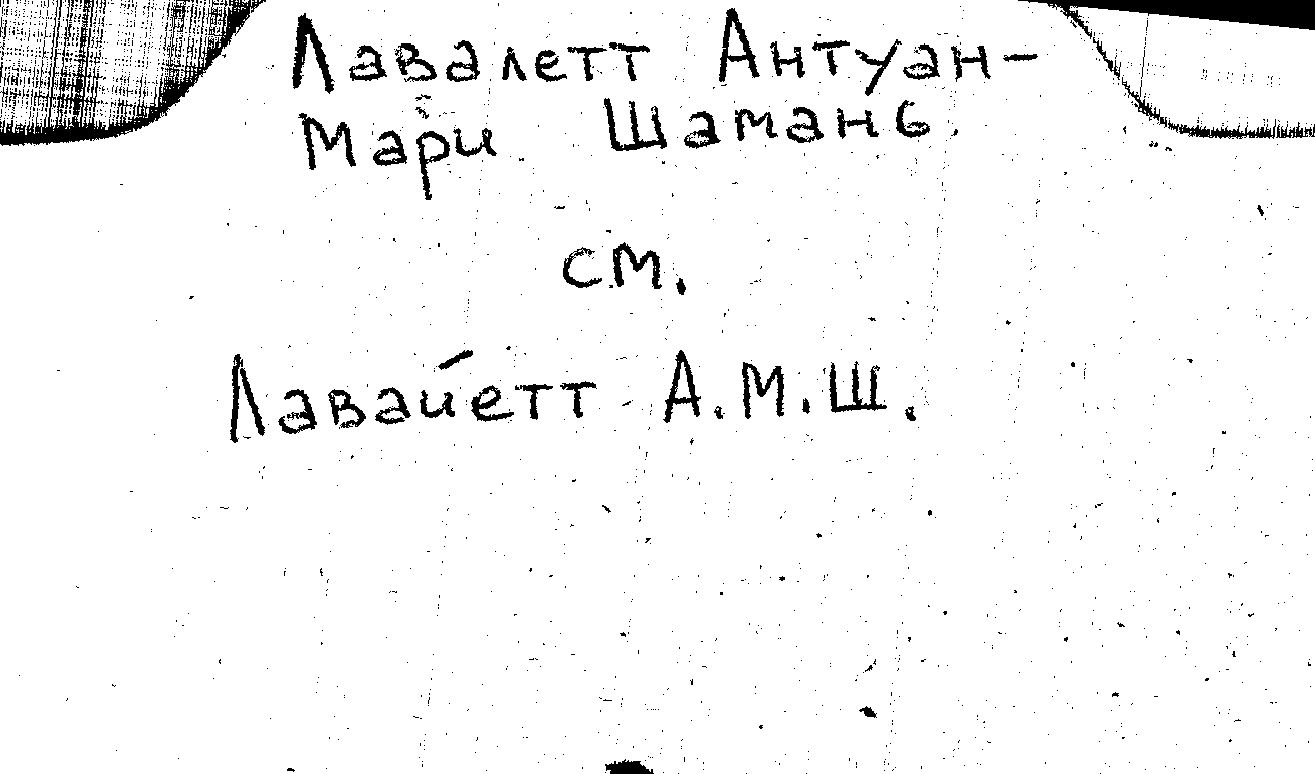 Лавалетт Антуан-
Мари Шамань
см.
Лавайетт А.М.Ш.